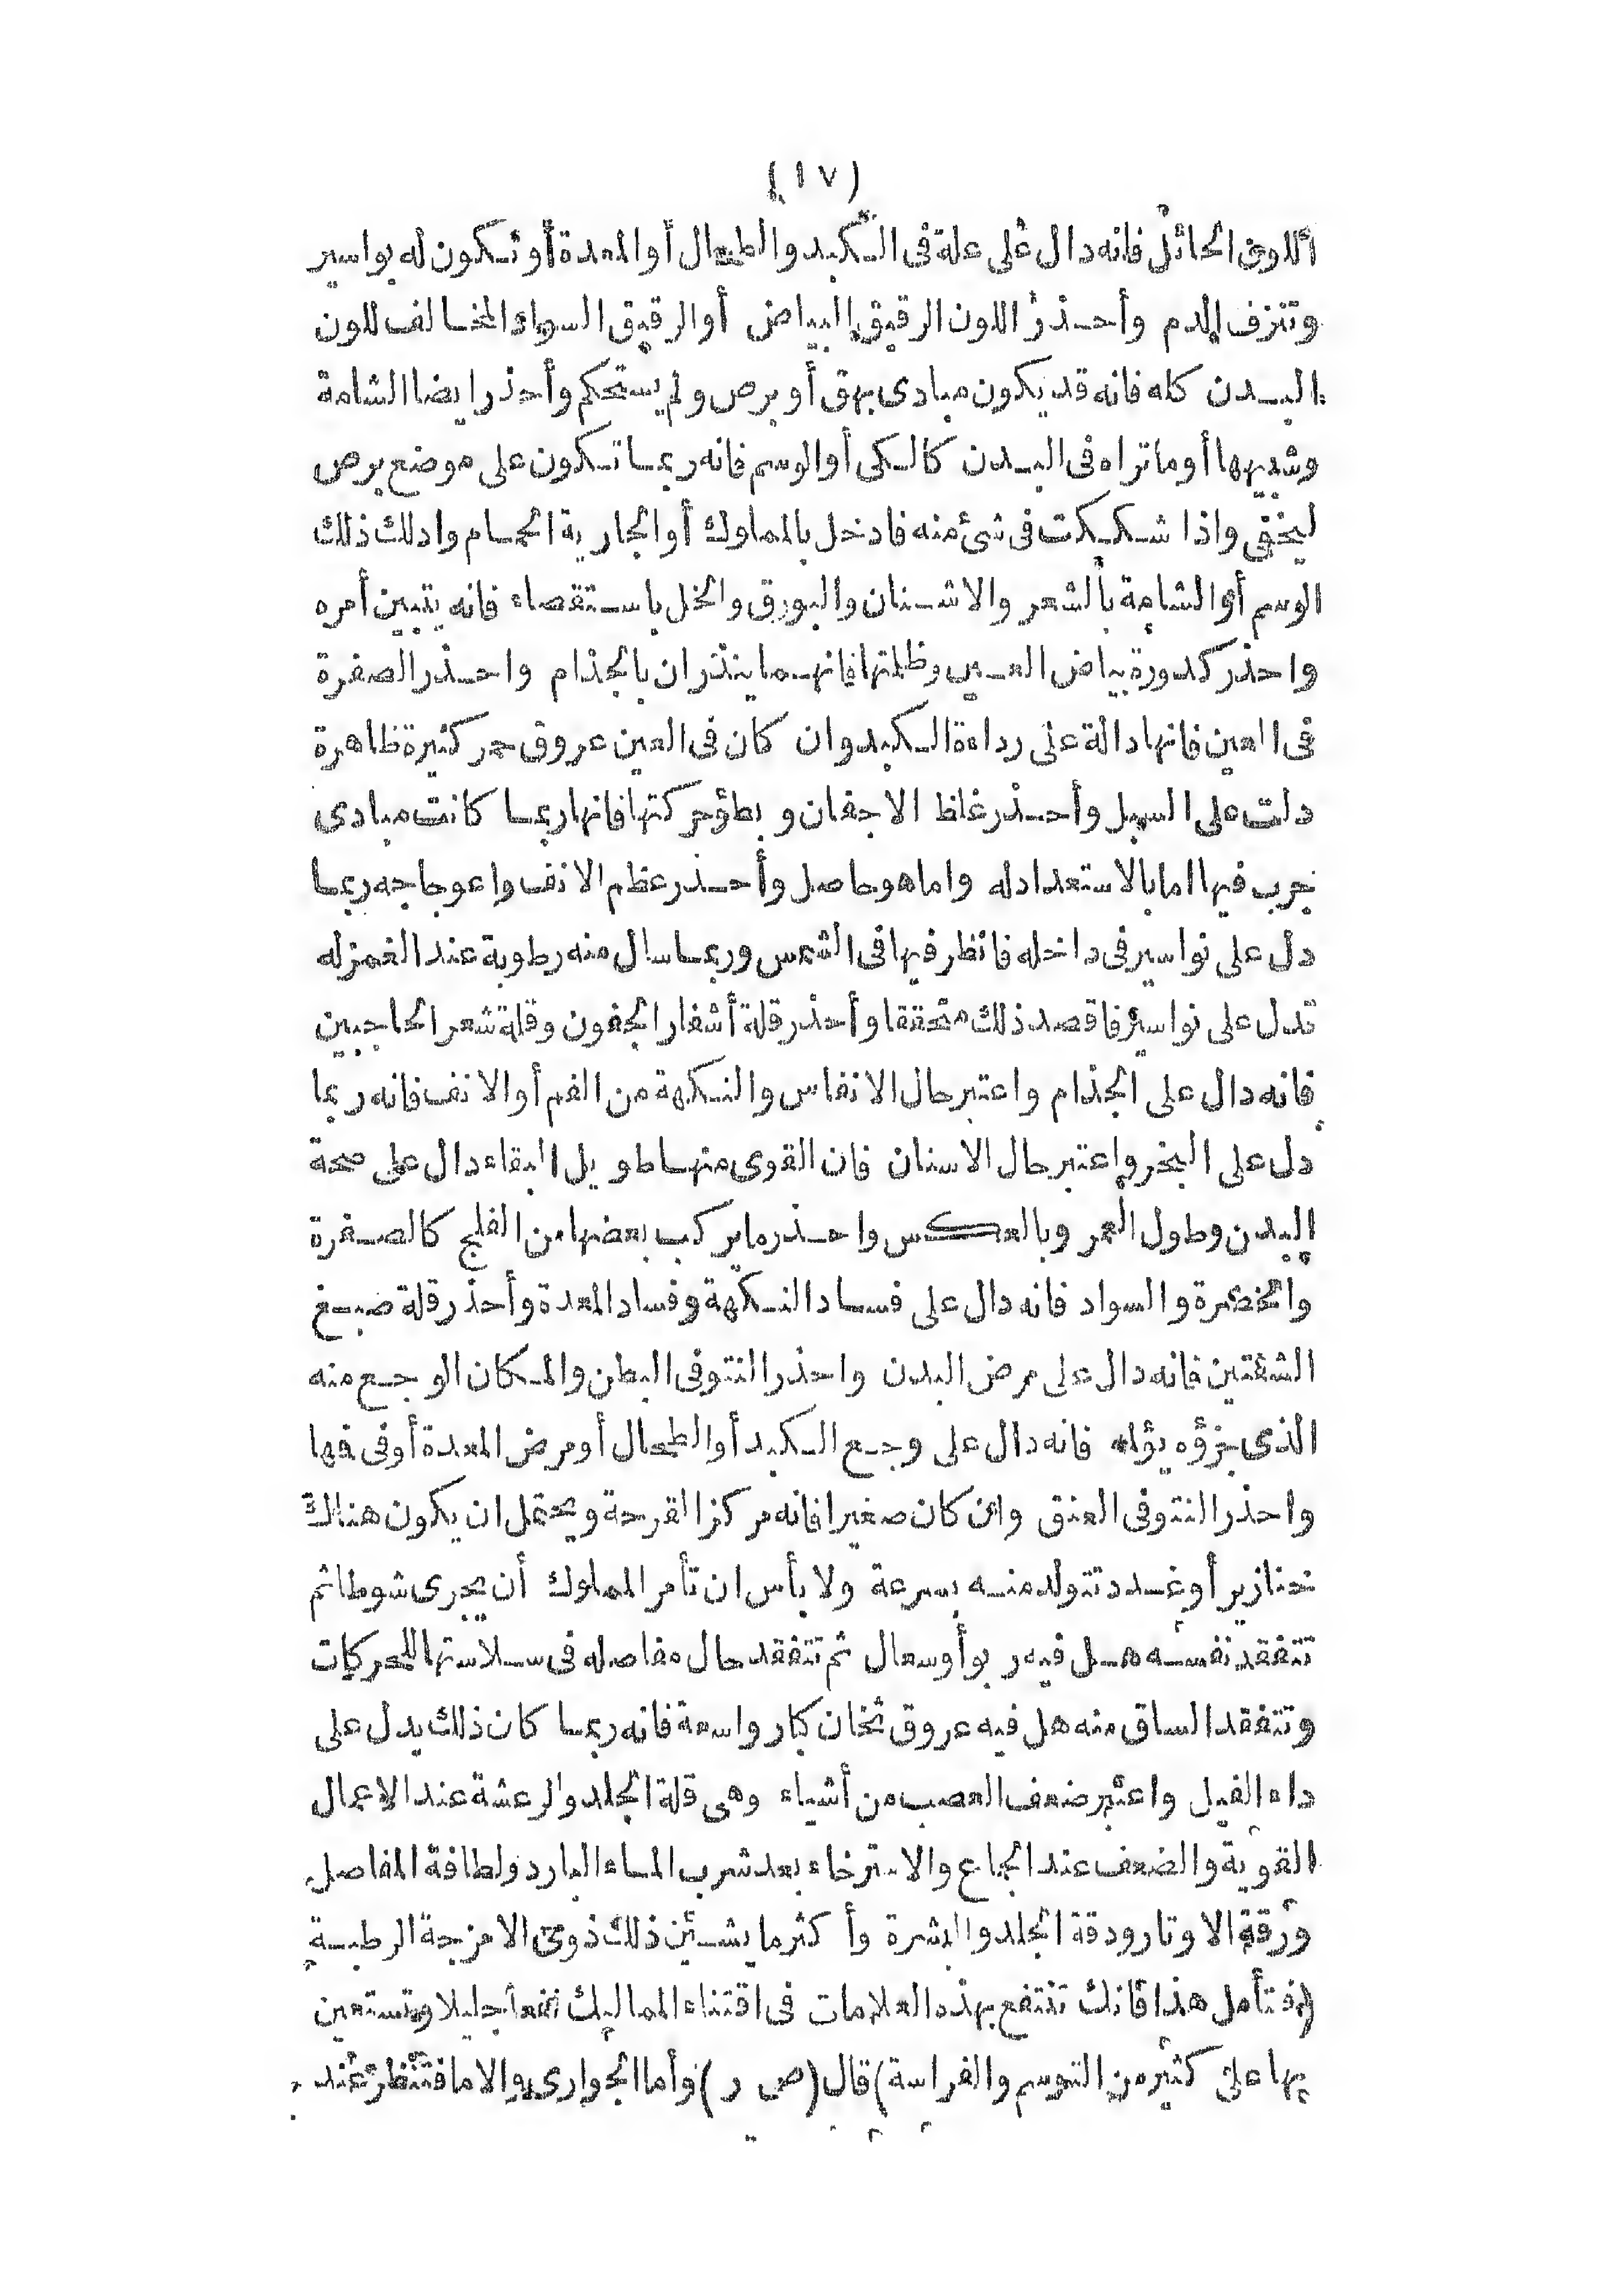 (١٧)
اللون الحائل فانه دال على علة فى الكبد والطحال أو المعدة أو تكون له بواسير
وتنزف الدم وأحذر اللون الرقيق البياض أو الرقيق السواد المخالف للون
البدن كله فانه قد يكون مبادى بهق أو برص ولم يستحكم وأحذر ايضا الشامة
وشبهها أو ما تراه فى البدن كالكى أو الوسم فانه ربما تكون على موضع برص
ليخفى واذا شككت فى شئ منه فادخل بالمملوك أو الجارية الحمام وادلك ذلك
الوسم أو الشامة بالشعر والاشنان والبورق والخل باستقصاء فانه يتبين أمره
واحذر كدورة بياض العين وظلمتها فانهما ينذران بالجذام واحذر الصفرة
فى العين فانها دالة على رداءة الكبد وان كان فى العين عروق حمر كثيرة ظاهرة
دلت على السبل وأحذر غلظ الاجفان وبطؤ حركتها فانها ربما كانت مبادى
جرب فيها اما بالاستعداد له واما هو حاصل وأحذر عظم الانف واعوجاجه ربما
دل على نواسير فى داخله فانظر فيها فى الشمس وربما سال منه رطوبة عند الغمز له
تدل على نواسير فاقصد ذلك متحققا وأحذر قلة أشفار الجفون وقلة شعر الحاجبين
فانه دال على الجذام واعتبر حال الانفاس والنكهة من الفم أو الانف فانه ربما
دل على البخر واعتبر حال الاسنان فان القوى منها طويل البقاء دال على صحة
البدن وطول العمر وبالعكس واحذر ما يركب بعضها من الفلج كالصفرة
والخضرة والسواد فانه دال على فساد النكهة وفساد المعدة وأحذر قلة صبغ
الشفتين فانه دال على مرض البدن واحذر النتو فى البطن والمكان الوجع منه
الذى بغزؤه يؤلم فانه دال على وجع الكبد أو الطحال أو مرض المعدة أو فى فمها
واحذر النتو فى العنق وان كان صغيرا فانه مركز القرحة ويحتمل ان يكون هناك
خنازير أو غدد تتولد منه بسرعة ولا بأس ان تأمر المملوك أن يجرى شوطا ثم
تتفقد نفسه هل فيه ربو أو سعال ثم تتفقد حال مفاصله فى سلاستها للحركات
وتتفقد الساق منه هل فيه عروق ثخان كبار واسعة فانه ربما كان ذلك يدل على
داء الفيل واعتبر ضعف العصب من أشياء وهى قلة الجلد والرعشة عند الاعمال
القوية والضعف عند الجماع والاسترخاء بعد شرب الماء البارد ولطافة المفاصل
ورقة الاوتار ودقة الجلد والبشرة وأكثر ما يشين ذلك ذوى الامزجة الرطبة
(فتأمل هذا فانك تنتفع بهذه العلامات فى اقتناء المماليك نفعا جليلا وتستعين
بها على كثير من التوسم والفراسة) قال (ص ر) وأما الجوارى والاما فتنظر عند